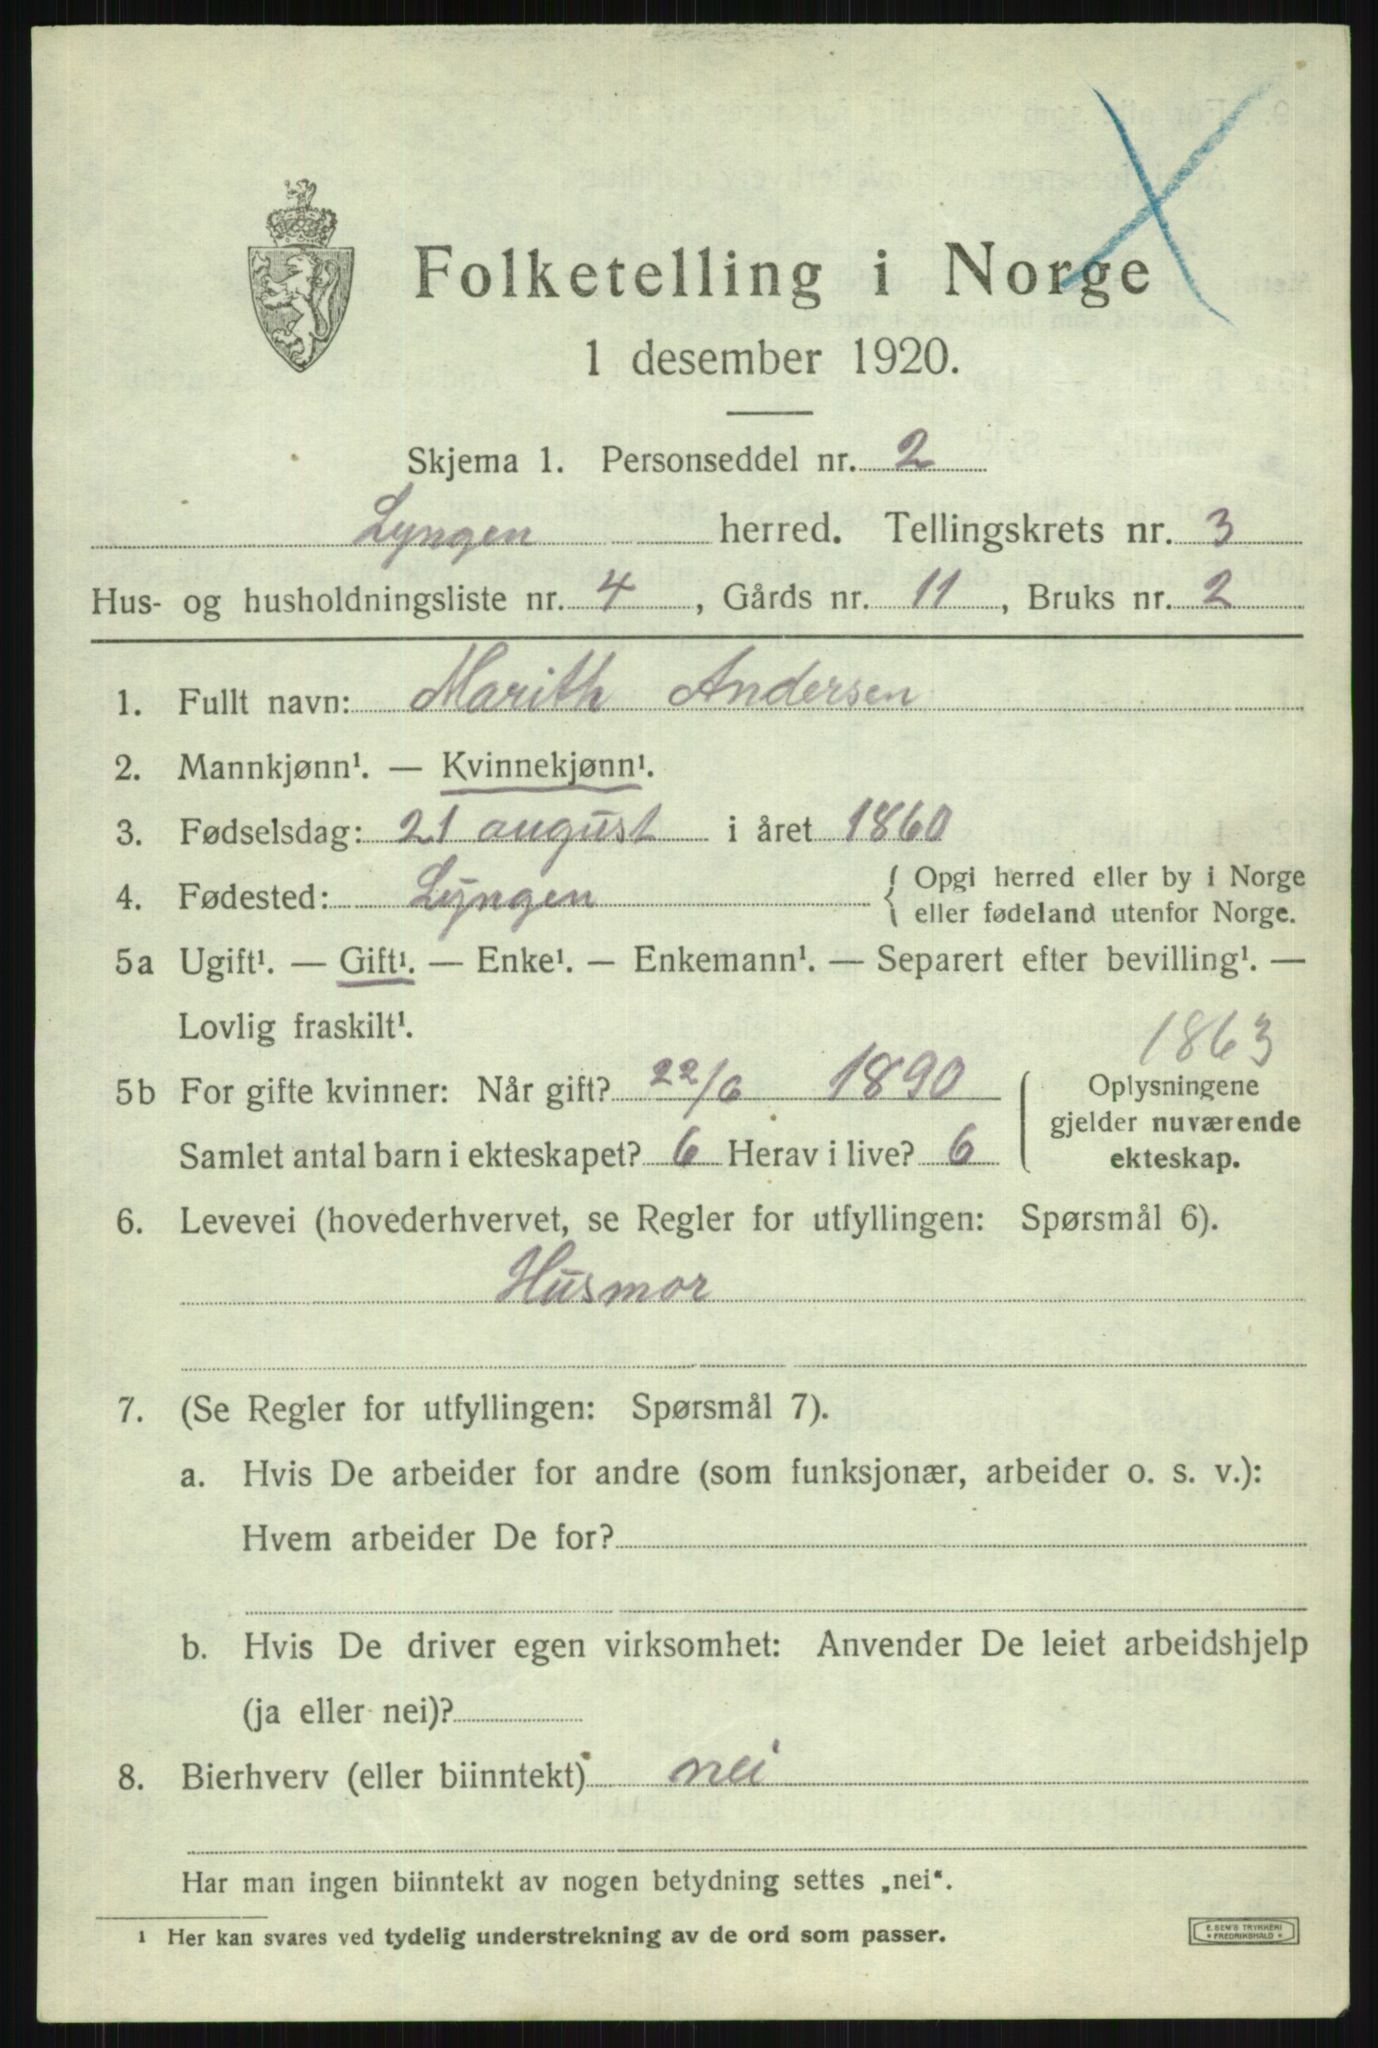 Folketelling i Norge
1 desember 1920.
Skjema 1. Personseddel nr. 2
Lyngen herred. Tellingskrets nr. 3
Hus- og husholdningsliste nr. 4, Gårds nr. 11, Bruks nr. 2
1. Fullt navn: Marith Andersen
2. Mannkjønn¹. — Kvinnekjønn¹.
3. Fødselsdag: 21 august i året 1860
4. Fødested: Lyngen { Opgi herred eller by i Norge
eller fødeland utenfor Norge.
5a Ugift¹. — Gift¹. — Enke¹. — Enkemann¹. — Separert efter bevilling¹. —
Lovlig fraskilt¹.
1863
5b For gifte kvinner: Når gift? 22/6 1890 Oplysningene
gjelder nuværende
Samlet antal barn i ekteskapet? 6 Herav i live? 6 ekteskap.
6. Levevei (hovederhvervet, se Regler for utfyllingen: Spørsmål 6).
Husmor
7. (Se Regler for utfyllingen: Spørsmål 7).
a. Hvis De arbeider for andre (som funksjonær, arbeider o. s. v.):
Hvem arbeider De for?
b. Hvis De driver egen virksomhet: Anvender De leiet arbeidshjelp
(ja eller nei)?
8. Bierhverv (eller biinntekt) nei
Har man ingen biinntekt av nogen betydning settes „nei“.
¹ Her kan svares ved tydelig understrekning av de ord som passer.
E. SEM'S TRYKKERI
* FREDRIKSHALD *